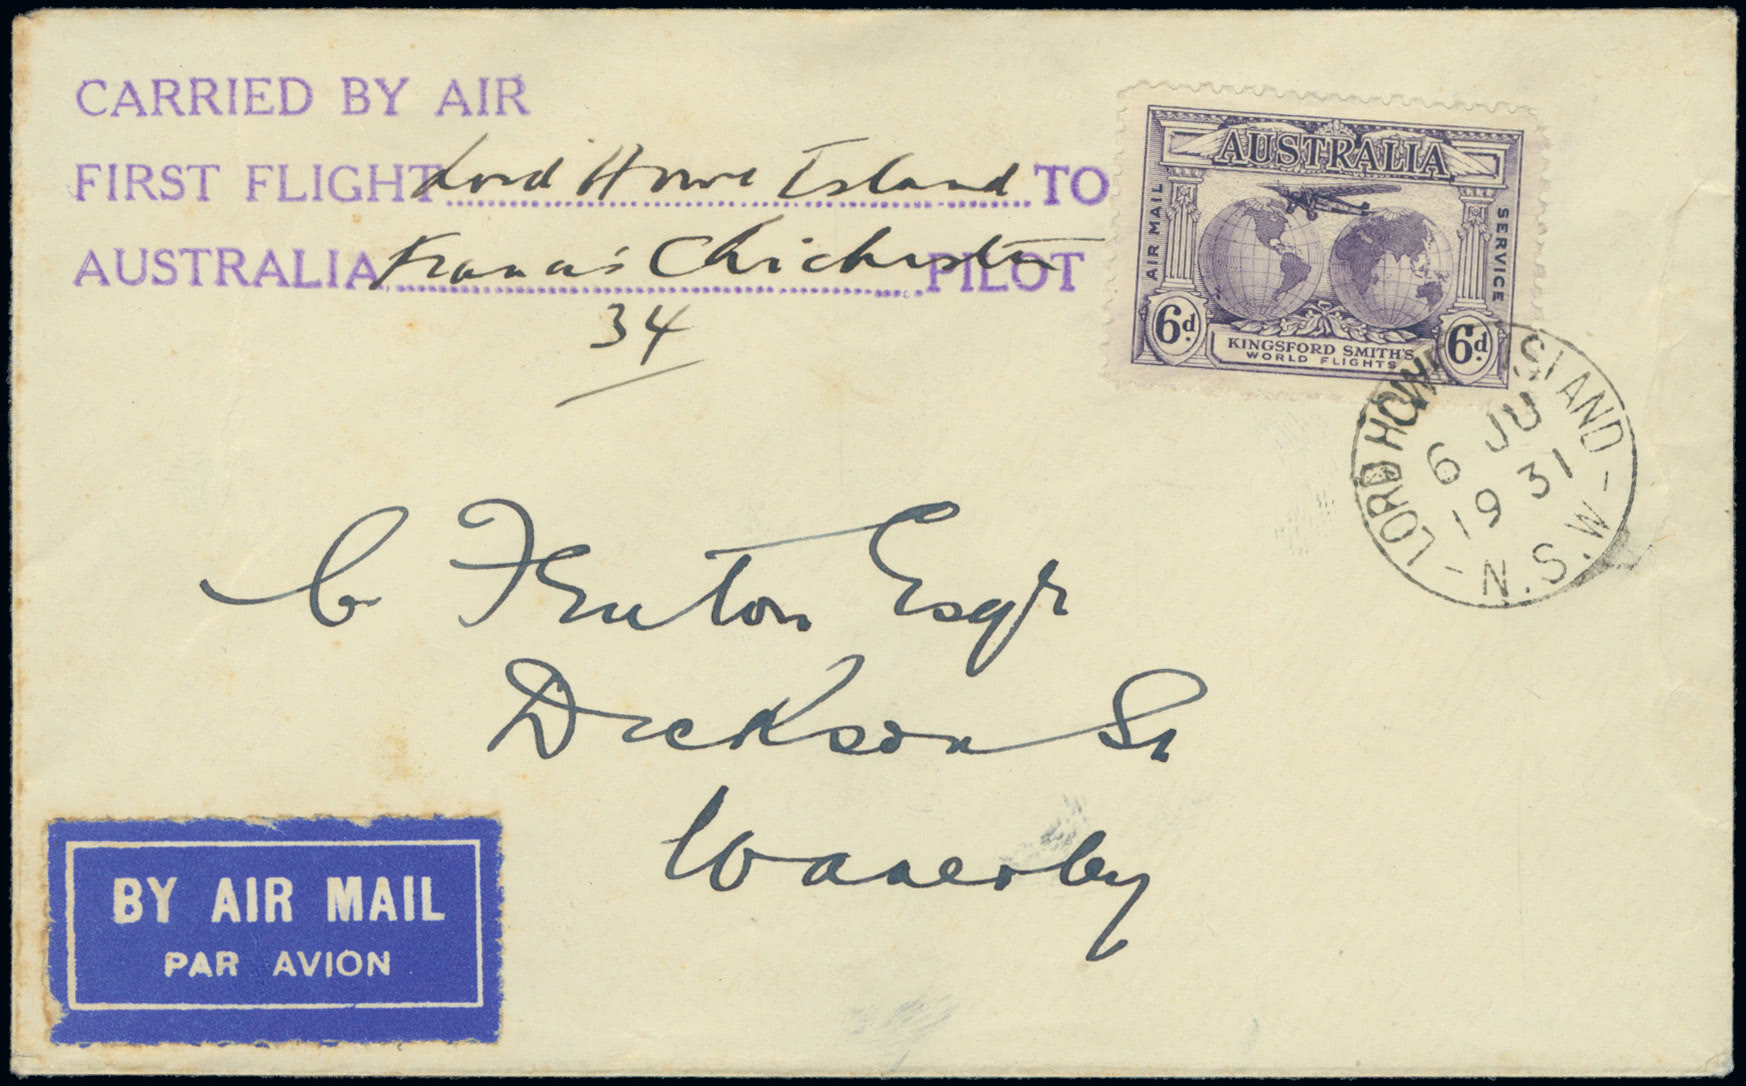 CARRIED BY AIR
FIRST FLIGHT Lord Howe Island TO
AUSTRALIA Francis Chichester PILOT
34
AUSTRALIA
AIR MAIL
SERVICE
6d
6d
KINGSFORD SMITH'S
WORLD FLIGHTS
LORD HOWE ISLAND
6 JU
19 31
N.S.W
C Fenton Esqr
Dickson St
Waverley
BY AIR MAIL
PAR AVION